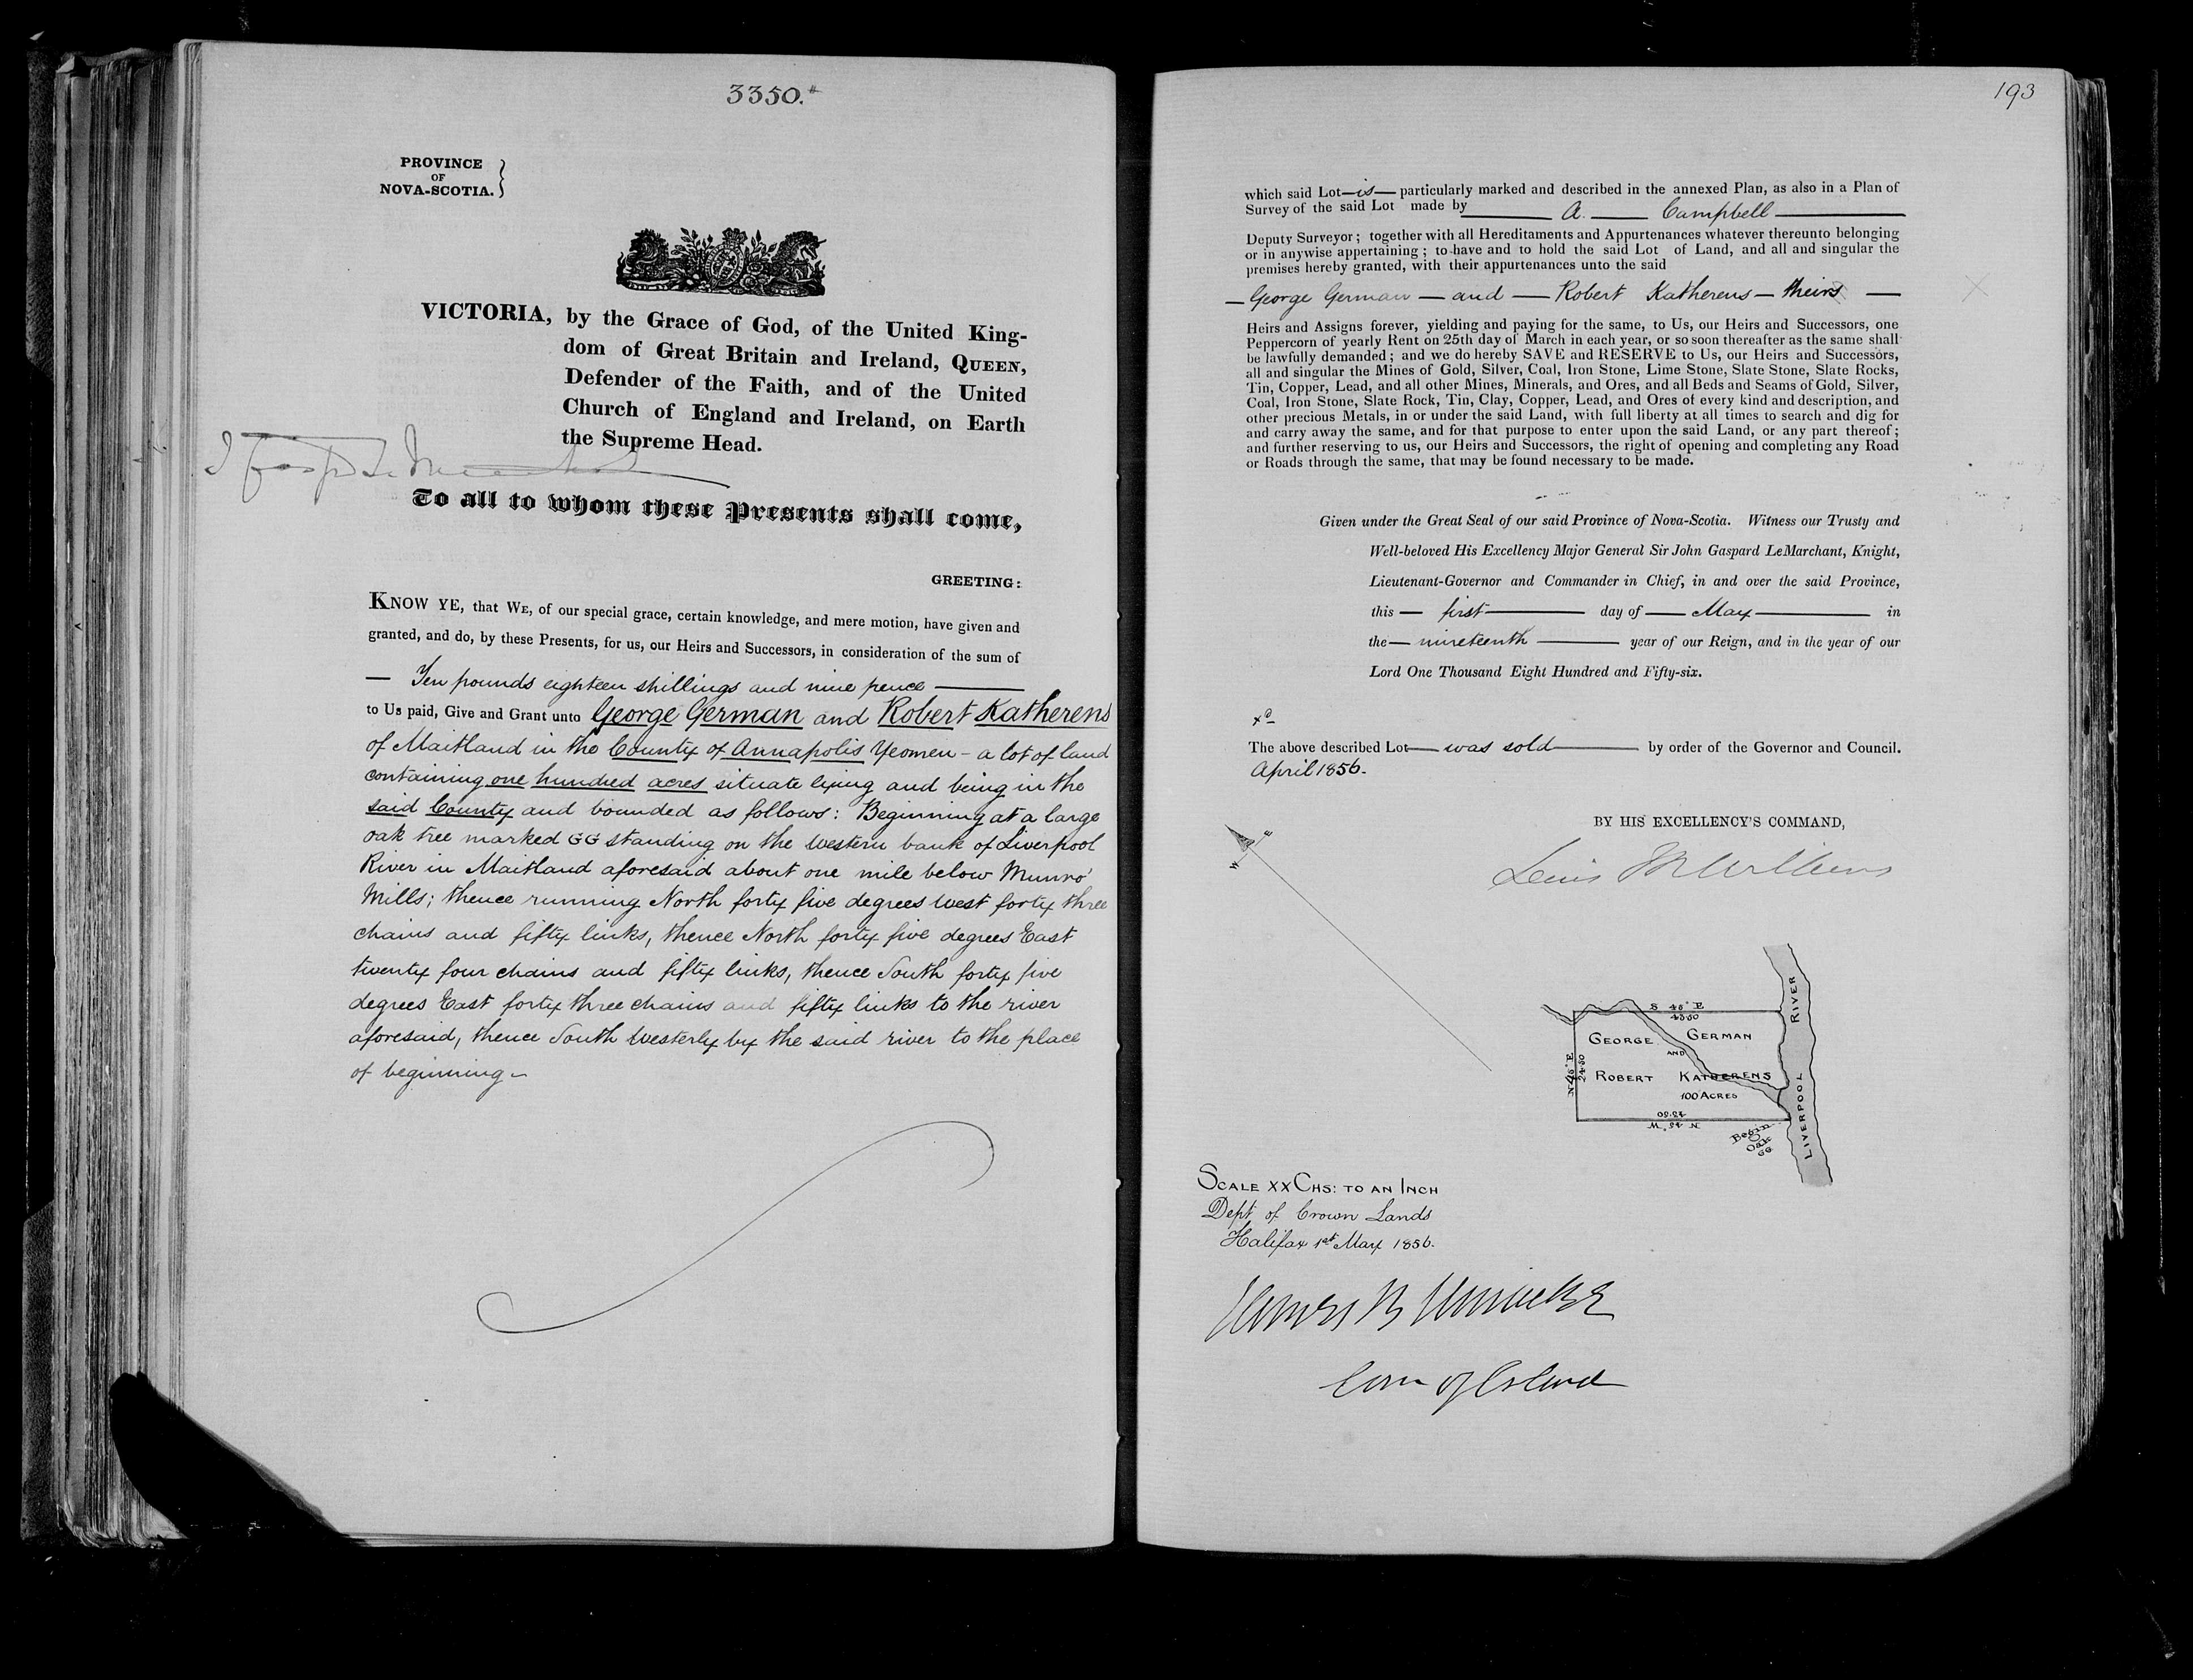 3350.
PROVINCE
OF
NOVA-SCOTIA.
VICTORIA, by the Grace of God, of the United King-
dom of Great Britain and Ireland, QUEEN,
Defender of the Faith, and of the United
Church of England and Ireland, on Earth
the Supreme Head.
To all to whom these Presents shall come,
GREETING:
KNOW YE, that WE, of our special grace, certain knowledge, and mere motion, have given and
granted, and do, by these Presents, for us, our Heirs and Successors, in consideration of the sum of
— Ten pounds eighteen shillings and nine pence —
to Us paid, Give and Grant unto George German and Robert Katherens
of Maitland in the County of Annapolis Yeomen - a lot of land
containing one hundred acres situate lying and being in the
said County and bounded as follows: Beginning at a large
oak tree marked GG standing on the western bank of Liverpool
River in Maitland aforesaid about one mile below Munro'
Mills; thence running North forty five degrees West forty three
chains and fifty links, thence North forty five degrees East
twenty four chains and fifty links, thence South forty five
degrees East forty three chains and fifty links to the river
aforesaid, thence South Westerly by the said river to the place
of beginning -
193
which said Lot — is — particularly marked and described in the annexed Plan, as also in a Plan of
Survey of the said Lot made by — A. — Campbell —
Deputy Surveyor; together with all Hereditaments and Appurtenances whatever thereunto belonging
or in anywise appertaining; to have and to hold the said Lot of Land, and all and singular the
premises hereby granted, with their appurtenances unto the said
— George German — and — Robert Katherens — theirs —
Heirs and Assigns forever, yielding and paying for the same, to Us, our Heirs and Successors, one
Peppercorn of yearly Rent on 25th day of March in each year, or so soon thereafter as the same shall
be lawfully demanded; and we do hereby SAVE and RESERVE to Us, our Heirs and Successors,
all and singular the Mines of Gold, Silver, Coal, Iron Stone, Lime Stone, Slate Stone, Slate Rocks,
Tin, Copper, Lead, and all other Mines, Minerals, and Ores, and all Beds and Seams of Gold, Silver,
Coal, Iron Stone, Slate Rock, Tin, Clay, Copper, Lead, and Ores of every kind and description, and
other precious Metals, in or under the said Land, with full liberty at all times to search and dig for
and carry away the same, and for that purpose to enter upon the said Land, or any part thereof;
and further reserving to us, our Heirs and Successors, the right of opening and completing any Road
or Roads through the same, that may be found necessary to be made.
Given under the Great Seal of our said Province of Nova-Scotia. Witness our Trusty and
Well-beloved His Excellency Major General Sir John Gaspard LeMarchant, Knight,
Lieutenant-Governor and Commander in Chief, in and over the said Province,
this — first — day of — May — in
the — nineteenth — year of our Reign, and in the year of our
Lord One Thousand Eight Hundred and Fifty-six.
The above described Lot — was sold — by order of the Governor and Council.
April 1856.
BY HIS EXCELLENCY'S COMMAND,
W E
S 45° E
43.50
GEORGE GERMAN
AND
ROBERT KATHERENS
100 ACRES
N 45° E
24.50
43.50
N 45° W
Begin
Oak
GG
LIVERPOOL RIVER
SCALE XX CHS: TO AN INCH
Dept. of Crown Lands
Halifax 1st May 1856.